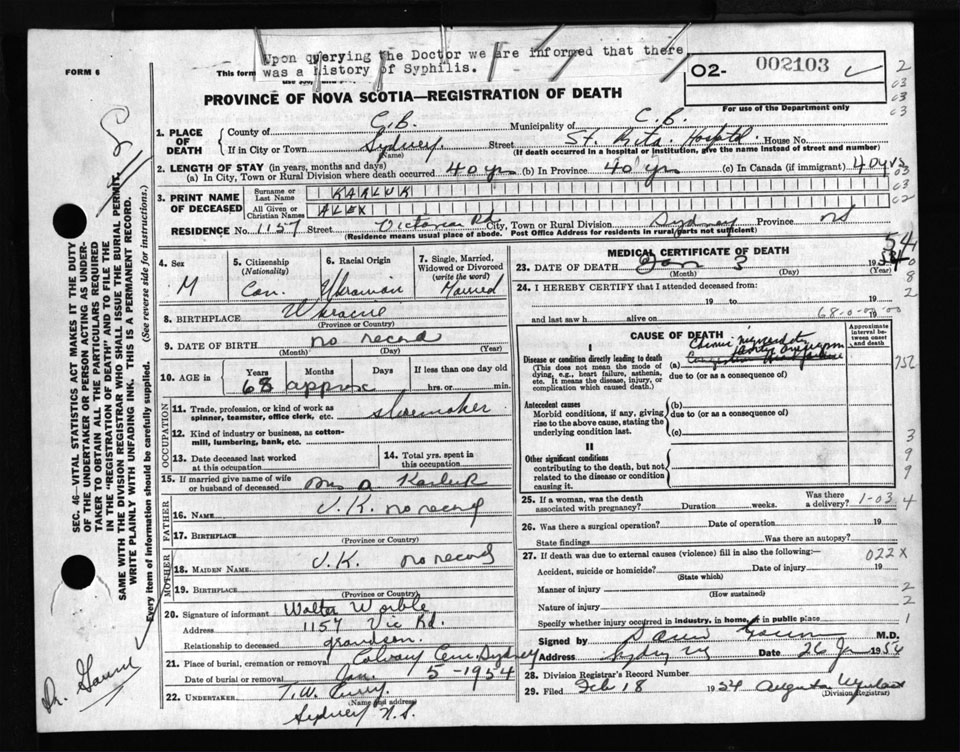 Upon querying the Doctor we are informed that there
was a history of Syphilis.
FORM 6
This form
O2- 002103
2
03
03
03
For use of the Department only
PROVINCE OF NOVA SCOTIA—REGISTRATION OF DEATH
1. PLACE OF DEATH
County of C.B. Municipality of C.B.
If in City or Town Sydney. Street St. Rita Hospital. House No.
(Name) (If death occurred in a hospital or institution, give the name instead of street and number)
2. LENGTH OF STAY (in years, months and days)
(a) In City, Town or Rural Division where death occurred 40 yrs (b) In Province 40 yrs (c) In Canada (if immigrant) 40 yrs
3. PRINT NAME OF DECEASED
Surname or Last Name KARLUK
All Given or Christian Names ALEX
03
02
RESIDENCE No. 1157 Street Victoria Rd. City, Town or Rural Division Sydney Province NS
(Residence means usual place of abode. Post Office Address for residents in rural parts not sufficient)
4. Sex M
5. Citizenship (Nationality) Can.
6. Racial Origin Ukranian
7. Single, Married, Widowed or Divorced (write the word) Married
8. BIRTHPLACE Ukraine
(Province or Country)
9. DATE OF BIRTH no record
(Month) (Day) (Year)
10. AGE in Years Months Days If less than one day old
68 approx hrs. or min.
OCCUPATION
11. Trade, profession, or kind of work as spinner, teamster, office clerk, etc. shoemaker.
12. Kind of industry or business, as cotton-mill, lumbering, bank, etc.
13. Date deceased last worked at this occupation
14. Total yrs. spent in this occupation
15. If married give name of wife or husband of deceased Mrs A Karluk
FATHER
16. NAME U.K. no record
17. BIRTHPLACE
(Province or Country)
MOTHER
18. MAIDEN NAME U.K. no record
19. BIRTHPLACE
(Province or Country)
20. Signature of informant Walter Worble
Address 1157 Vic Rd.
Relationship to deceased grandson.
21. Place of burial, cremation or removal Calvary Cem. Sydney
Date of burial or removal Jan. 5-1954
22. UNDERTAKER T.W. Curry.
(Name and address)
Sydney N.S.
MEDICAL CERTIFICATE OF DEATH
54
23. DATE OF DEATH Jan 3 19
(Month) (Day) (Year)
24. I HEREBY CERTIFY that I attended deceased from:
19 to 19
and last saw h alive on 19
CAUSE OF DEATH
Approximate interval between onset and death
I
Disease or condition directly leading to death
(This does not mean the mode of dying, e.g., heart failure, asthenia, etc. It means the disease, injury, or complication which caused death.)
(a)
due to (or as a consequence of)
Antecedent causes
Morbid conditions, if any, giving rise to the above cause, stating the underlying condition last.
(b)
due to (or as a consequence of)
(c)
II
Other significant conditions
contributing to the death, but not related to the disease or condition causing it.
3
9
9
25. If a woman, was the death associated with pregnancy? Duration weeks. Was there a delivery? 1-03 4
26. Was there a surgical operation? Date of operation 19
State findings Was there an autopsy?
27. If death was due to external causes (violence) fill in also the following:— 022X
Accident, suicide or homicide? Date of injury 19
(State which)
Manner of injury 2
(How sustained)
Nature of injury 2
Specify whether injury occurred in industry, in home, or in public place 1
Signed by M.D.
Address Sydney NS Date 26 Jan 1954
28. Division Registrar's Record Number
29. Filed Feb 18 1954
(Division Registrar)
SEC. 46—VITAL STATISTICS ACT MAKES IT THE DUTY
OF THE UNDERTAKER OR PERSON ACTING AS UNDER-
TAKER TO OBTAIN ALL THE PARTICULARS REQUIRED
IN THE "REGISTRATION OF DEATH" AND TO FILE THE
SAME WITH THE DIVISION REGISTRAR WHO SHALL ISSUE THE BURIAL PERMIT.
WRITE PLAINLY WITH UNFADING INK. THIS IS A PERMANENT RECORD.
Every item of information should be carefully supplied. (See reverse side for instructions.)
Dr.